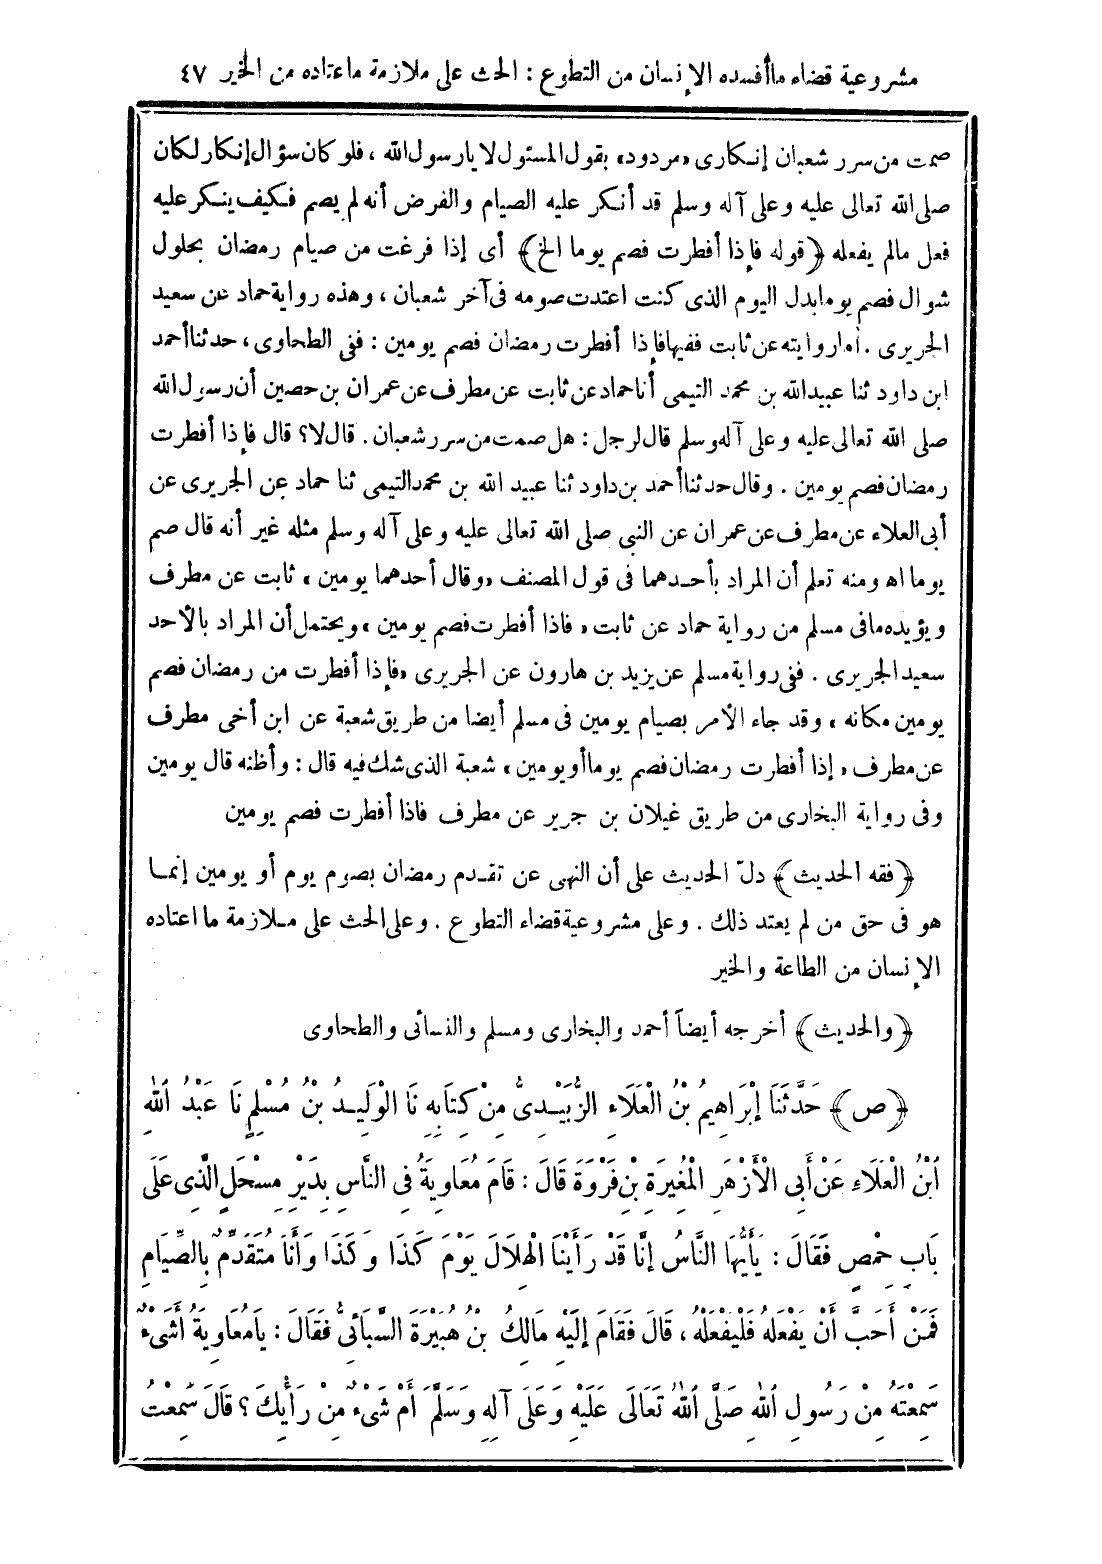 مشروعية قضاء ماأفسده الإنسان من التطوع : الحث على ملازمة مااعتاده من الخير ٤٧
صمت من سرر شعبان إنكارى «مردود» بقول المسئول لا يارسول الله ، فلو كان سؤال إنكار لكان
صلى الله تعالى عليه وعلى آله وسلم قد أنكر عليه الصيام والفرض أنه لم يصم فكيف ينكر عليه
فعل مالم يفعله ﴿قوله فإذا أفطرت فصم يوما الخ﴾ أى إذا فرغت من صيام رمضان بحلول
شوال فصم يوما بدل اليوم الذى كنت اعتدت صومه فى آخر شعبان ، وهذه رواية حماد عن سعيد
الجريرى . أما روايته عن ثابت ففيها فإذا أفطرت رمضان فصم يومين : ففى الطحاوى ، حدثنا أحمد
ابن داود ثنا عبيد الله بن محمد التيمى أنا حماد عن ثابت عن مطرف عن عمران بن حصين أن رسول الله
صلى الله تعالى عليه وعلى آله وسلم قال لرجل : هل صمت من سرر شعبان . قال لا؟ قال فإذا أفطرت
رمضان فصم يومين . وقال حدثنا أحمد بن داود ثنا عبيد الله بن محمد التيمى ثنا حماد عن الجريرى عن
أبى العلاء عن مطرف عن عمران عن النبى صلى الله تعالى عليه وعلى آله وسلم مثله غير أنه قال صم
يوما اه ومنه تعلم أن المراد بأحدهما فى قول المصنف «وقال أحدهما يومين» ثابت عن مطرف
ويؤيده مافى مسلم من رواية حماد عن ثابت «فاذا أفطرت فصم يومين» ويحتمل أن المراد بالأحد
سعيد الجريرى . ففى رواية مسلم عن يزيد بن هارون عن الجريرى «فإذا أفطرت من رمضان فصم
يومين مكانه» وقد جاء الأمر بصيام يومين فى مسلم أيضا من طريق شعبة عن ابن أخى مطرف
عن مطرف «إذا أفطرت رمضان فصم يوما أو يومين» شعبة الذى شك فيه قال : وأظنه قال يومين
وفى رواية البخارى من طريق غيلان بن جرير عن مطرف فاذا أفطرت فصم يومين
﴿فقه الحديث﴾ دلّ الحديث على أن النهى عن تقدم رمضان بصوم يوم أو يومين إنما
هو فى حق من لم يعتد ذلك . وعلى مشروعية قضاء التطوع . وعلى الحث على ملازمة ما اعتاده
الإنسان من الطاعة والخير
﴿والحديث﴾ أخرجه أيضاً أحمد والبخارى ومسلم والنسائى والطحاوى
﴿ص﴾ حَدَّثَنَا إِبْرَاهِيمُ بْنُ الْعَلَاءِ الزُّبَيْدِىُّ مِنْ كِتَابِهِ نَا الْوَلِيدُ بْنُ مُسْلِمٍ نَا عَبْدُ اللهِ
ابْنُ الْعَلَاءِ عَنْ أَبِى الْأَزْهَرِ الْمُغِيرَةِ بْنِ فَرْوَةَ قَالَ : قَامَ مُعَاوِيَةُ فِى النَّاسِ بِدَيْرِ مِسْحَلٍ الَّذِى عَلَى
بَابِ حِمْصٍ فَقَالَ : يَأَيُّهَا النَّاسُ إِنَّا قَدْ رَأَيْنَا الْهِلَالَ يَوْمَ كَذَا وَكَذَا وَأَنَا مُتَقَدِّمٌ بِالصِّيَامِ
فَمَنْ أَحَبَّ أَنْ يَفْعَلَهُ فَلْيَفْعَلْهُ ، قَالَ فَقَامَ إِلَيْهِ مَالِكُ بْنُ هُبَيْرَةَ السَّبَأئِىُّ فَقَالَ : يَامُعَاوِيَةُ أَشَىْءٌ
سَمِعْتَهُ مِنْ رَسُولِ اللهِ صَلَّى اللهُ تَعَالَى عَلَيْهِ وَعَلَى آلِهِ وَسَلَّمَ أَمْ شَىْءٌ مِنْ رَأْيِكَ ؟ قَالَ سَمِعْتُ